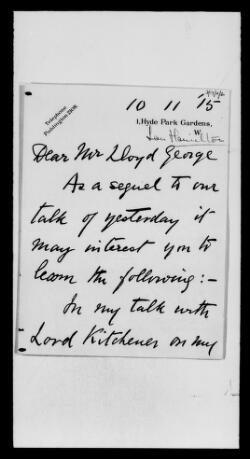 10 11 '15
Telephone
Paddington
1, Hyde Park Gardens,
W.
Ian Hamilton
Dear Mr Lloyd George
As a sequel to our
talk of yesterday it
may interest you to
learn the following :-
In my talk with
Lord Kitchener on my